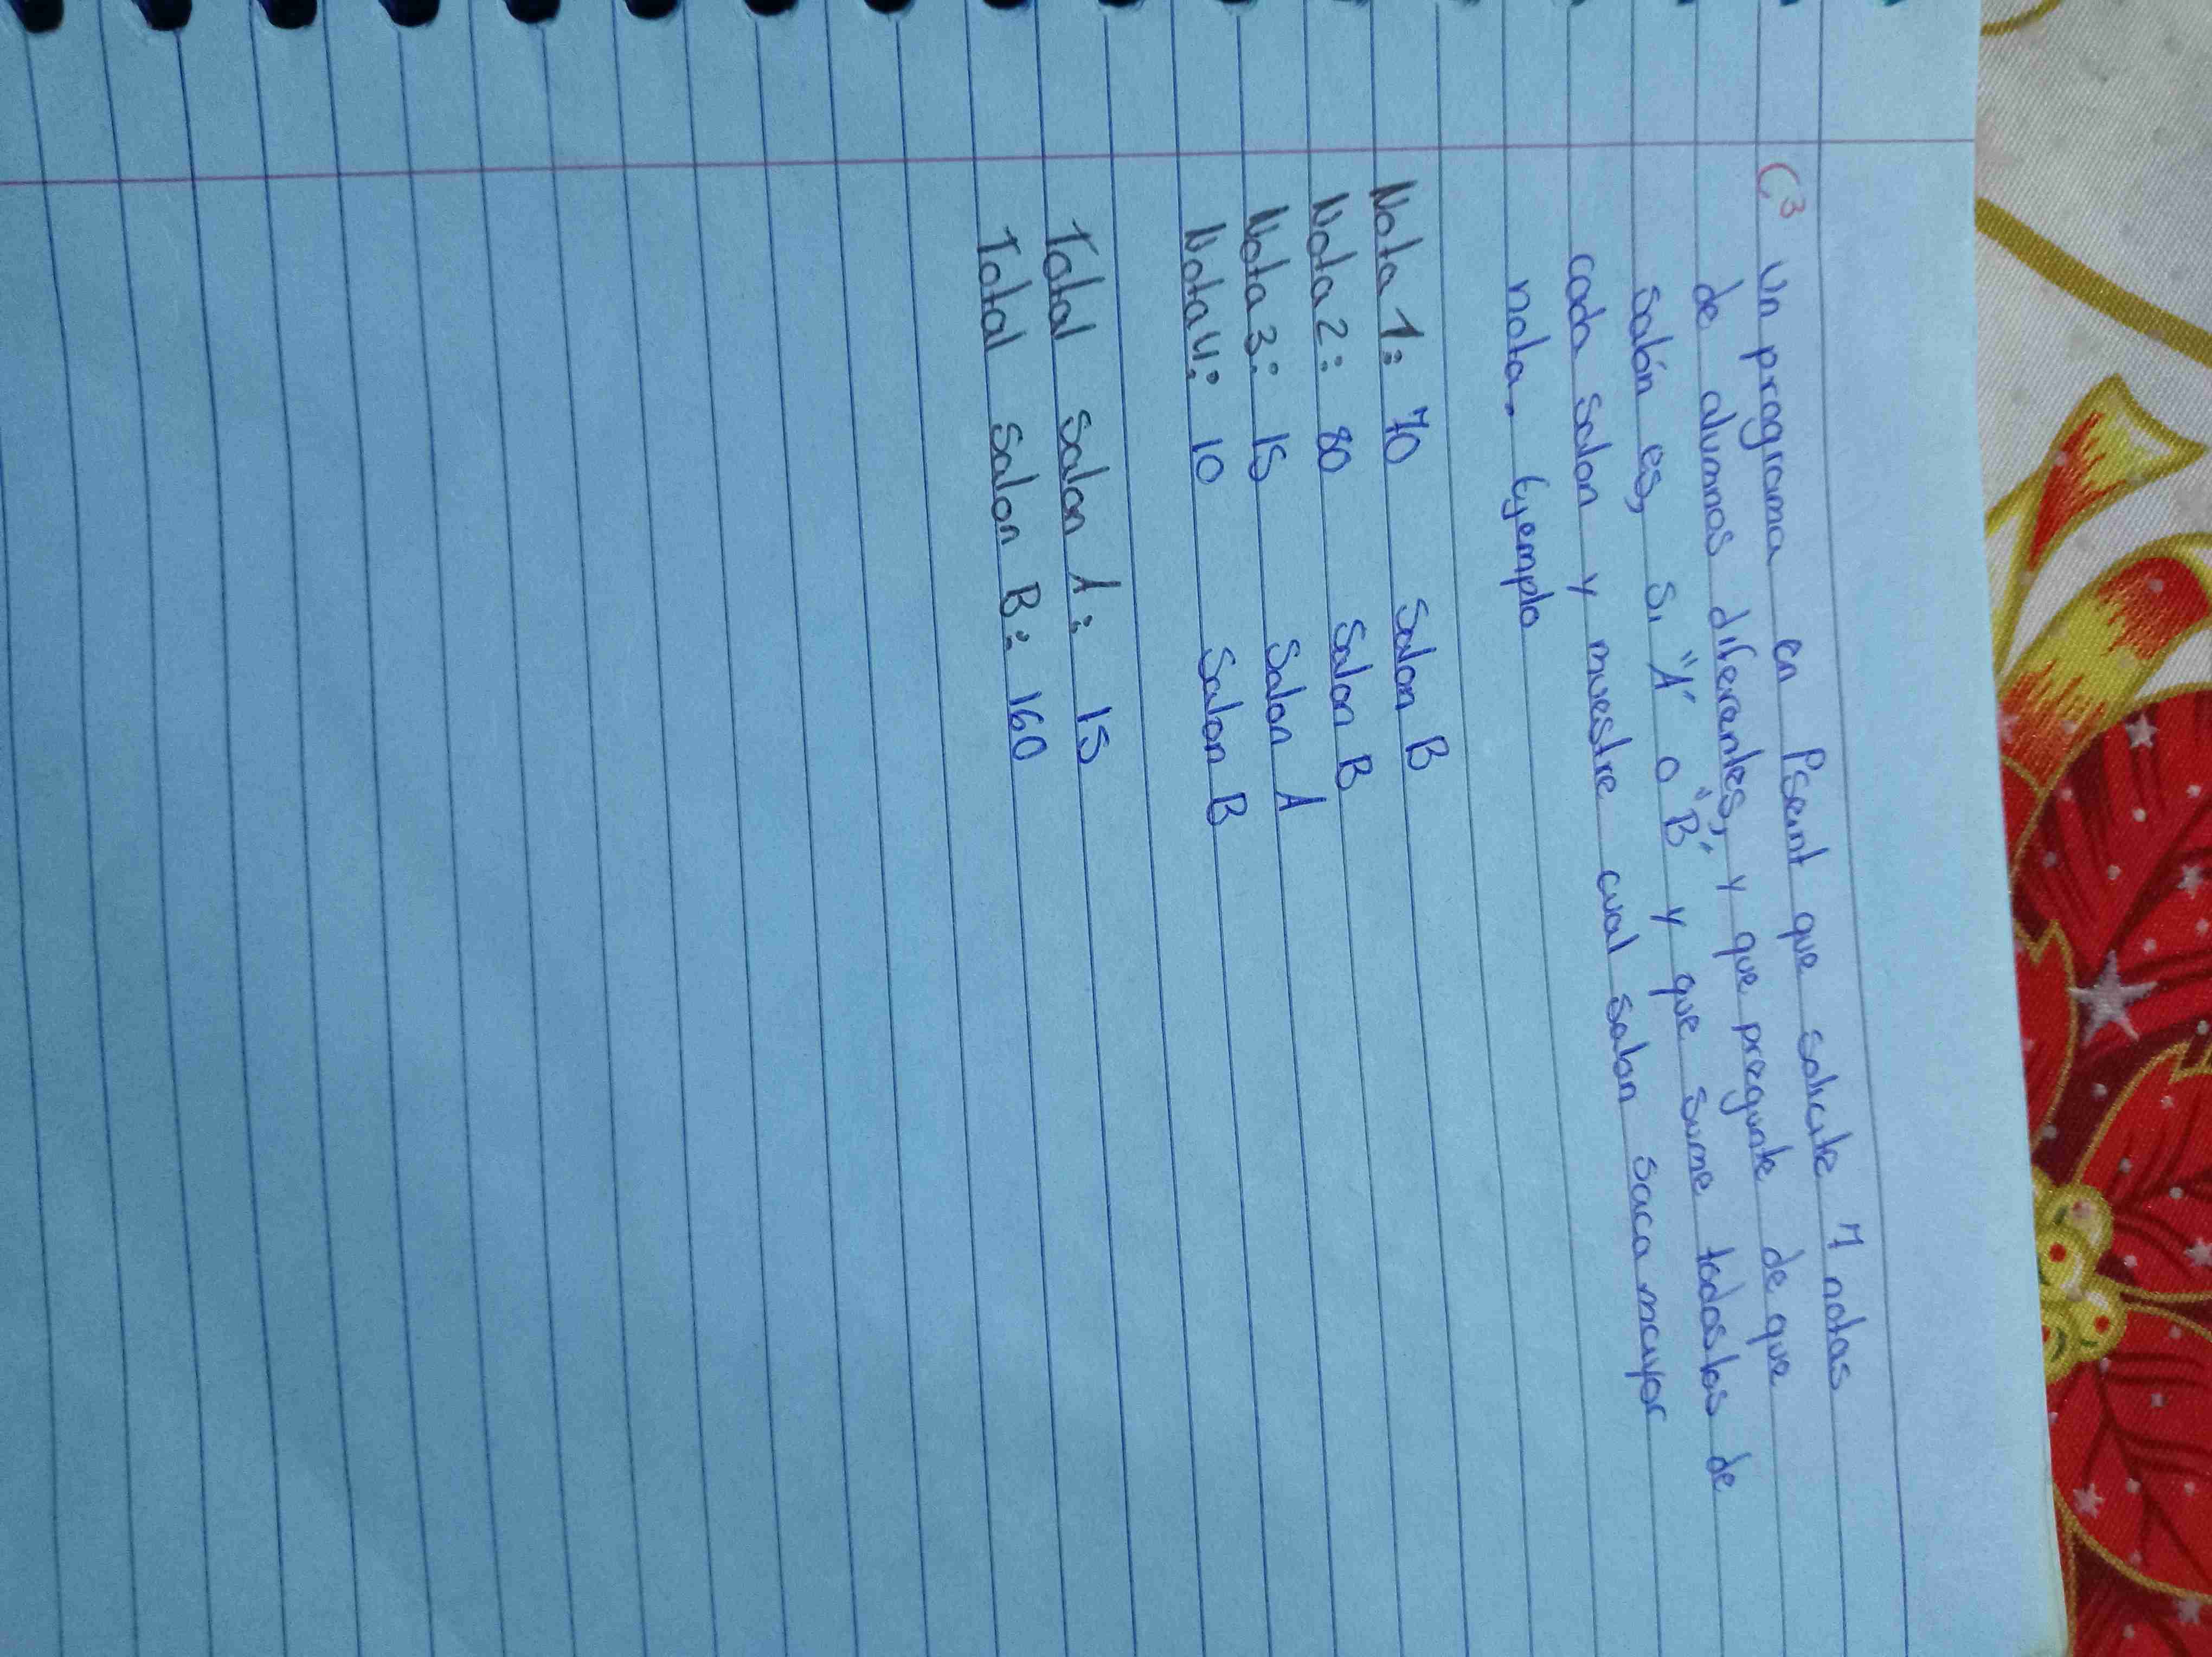 C3 Un programa en Pseint que solicite 7 notas
de alumnos diferentes, y que pregunte de que
salón es, si "A" o "B" y que sume todas las de
cada salon y muestre cual salon saca mayor
nota. Ejemplo
Nota 1: 70 Salon B
Nota 2: 80 Salon B
Nota 3: 15 Salon A
Nota 4: 10 Salon B
Total salon A: 15
Total salon B: 160